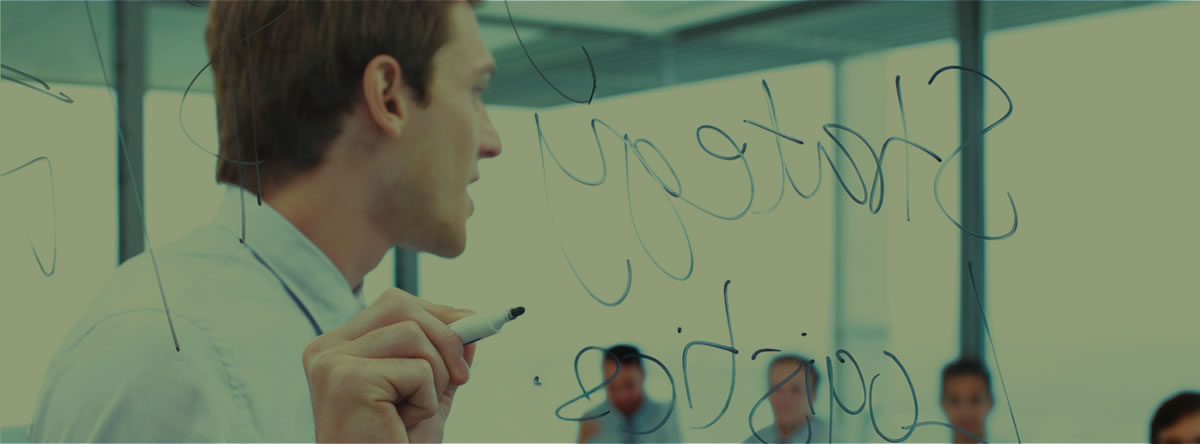 Strategy
Logistics